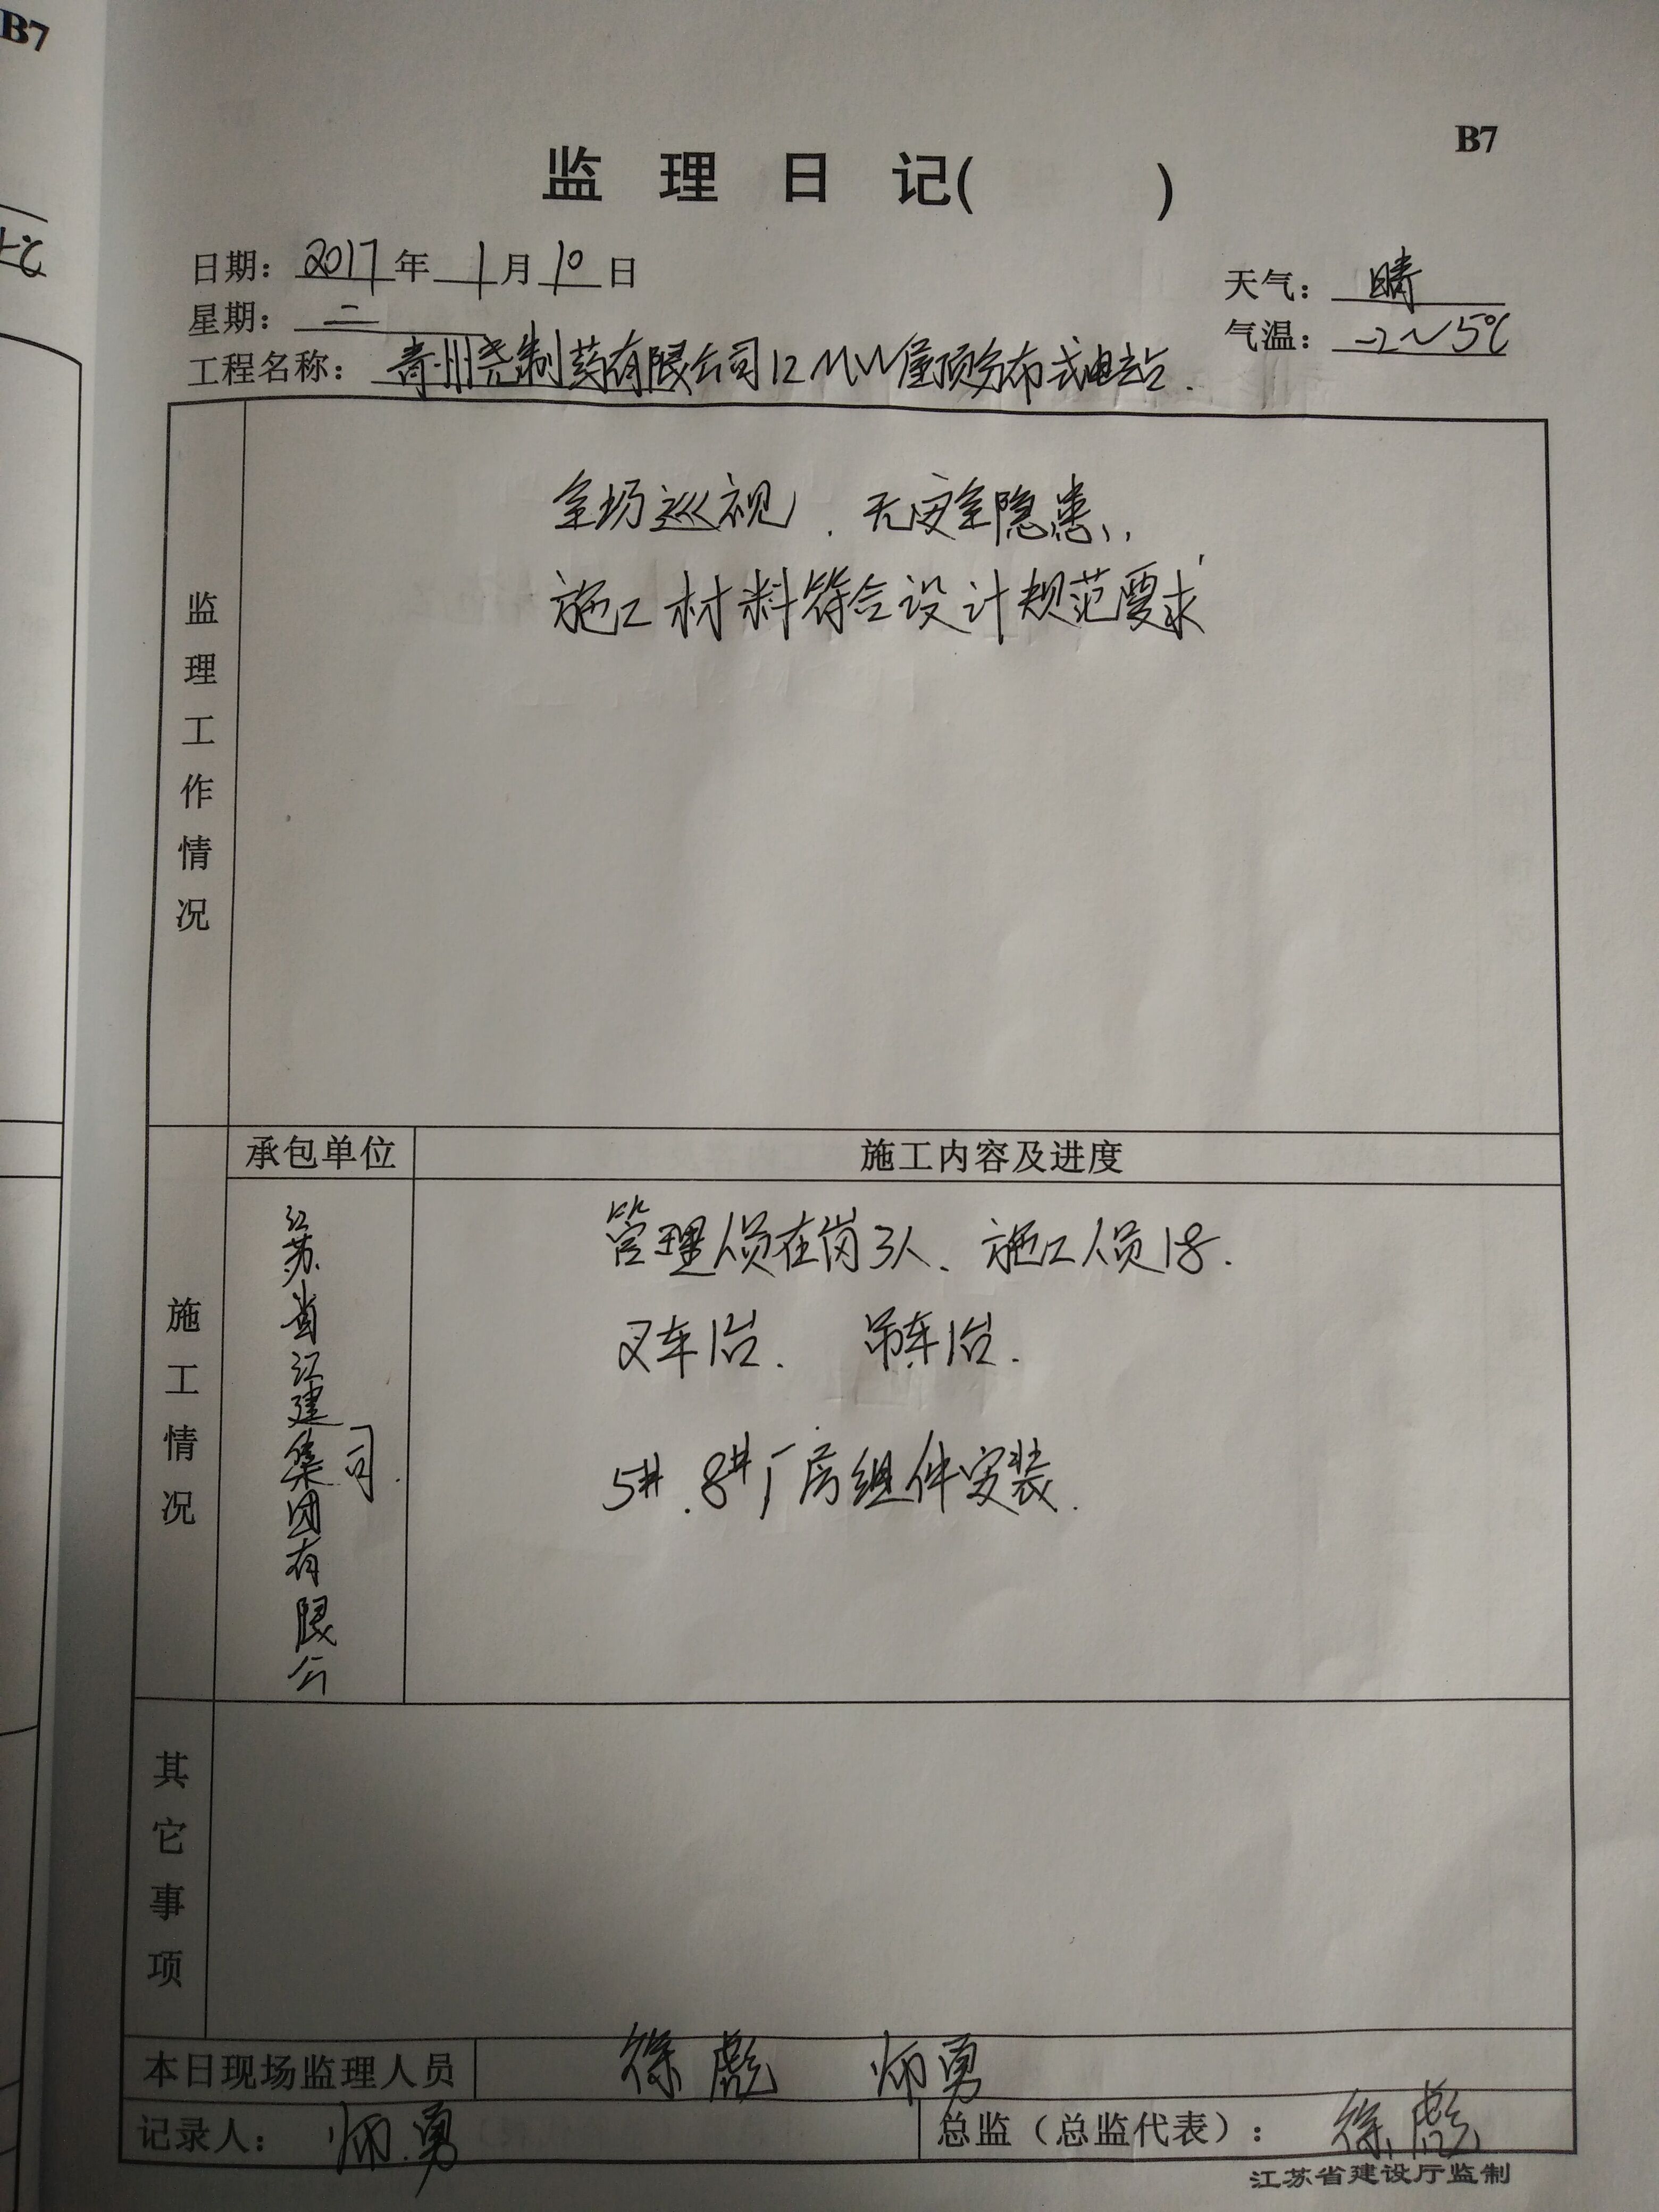 B7
B7
监理日记(    )
日期: 2017年 1月10日
天气: 晴
星期: 二
气温: -2~5℃
工程名称: 青州尧制药有限公司12MW屋顶分布式电站.
监理工作情况
全场巡视, 无安全隐患,
施工材料符合设计规范要求
施工情况
承包单位
施工内容及进度
江苏省江建集团有限公司.
管理人员在岗3人、施工人员18.
叉车1台. 吊车1台.
5#.8#厂房组件安装.
其它事项
本日现场监理人员 徐彪 师勇
记录人: 师勇
总监（总监代表）: 徐彪
江苏省建设厅监制